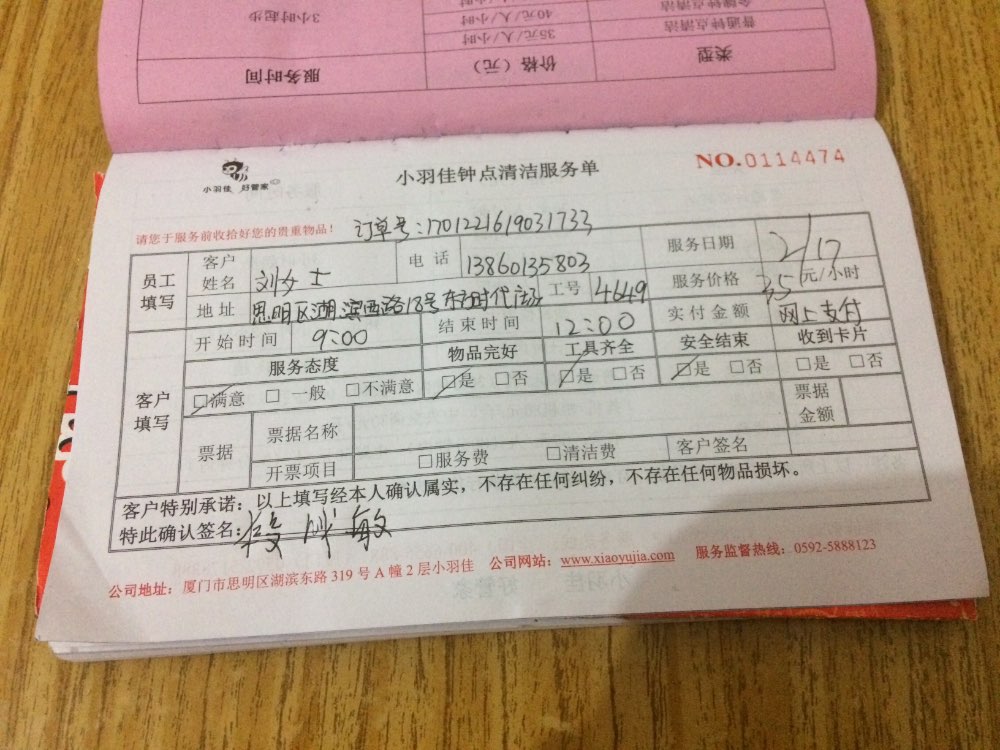 3小时起步 40元/人/小时 金牌钟点清洁
35元/人/小时 普通钟点清洁
服务时间 价格（元） 类型
小羽佳 好管家
小羽佳钟点清洁服务单
NO.0114474
请您于服务前收拾好您的贵重物品！ 订单号:1701221619031733
员工填写 客户姓名 刘女士 电话 13860135803 服务日期 2/17
地址 思明区湖滨西路18号东方时代广场 工号 4649 服务价格 35元/小时
客户填写 开始时间 9:00 结束时间 12:00 实付金额 网上支付
服务态度 物品完好 工具齐全 安全结束 收到卡片
□满意 □一般 □不满意 □是 □否 □是 □否 □是 □否 □是 □否
票据 票据名称 票据金额
开票项目 □服务费 □清洁费 客户签名
客户特别承诺：以上填写经本人确认属实，不存在任何纠纷，不存在任何物品损坏。
特此确认签名:
公司地址：厦门市思明区湖滨东路 319 号 A 幢 2 层小羽佳 公司网站：www.xiaoyujia.com 服务监督热线：0592-5888123